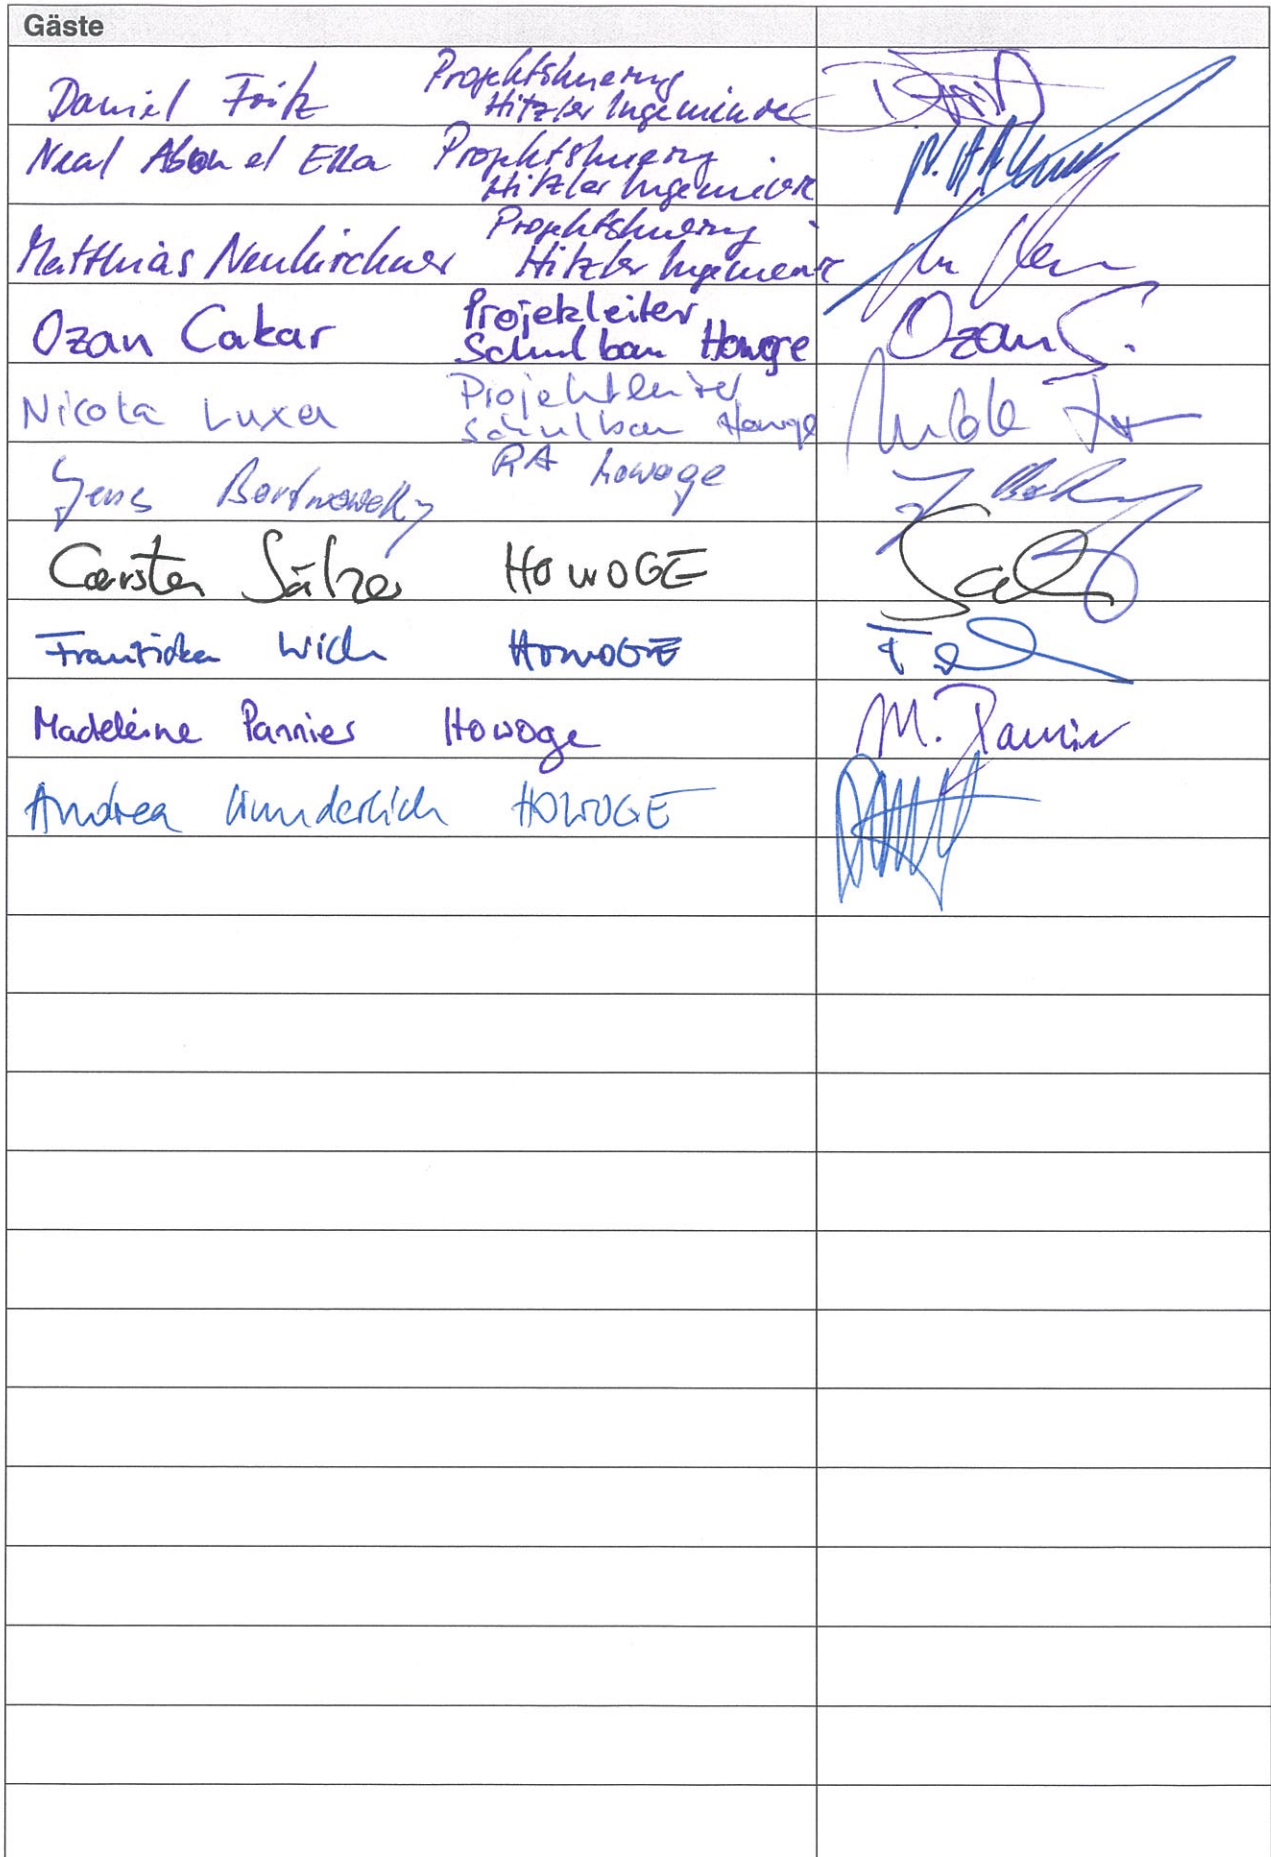 Gäste
Daniel Fritz Projektsteuerung
Hitzler Ingenieure
Projektsteuerung
Hitzler Ingenieure
Matthias Neukirchner Projektsteuerung
Hitzler Ingenieure
Ozan Cakar Projekleiter
Schulbau Howoge Ozan C.
Nicola Luxa Projektleiter
Schulbau Howoge
Jens RA howoge
Carsten Sälzer HOWOGE
Franziska Wich HOWOGE
Madeleine Pannier Howoge M. Pannier
Andrea Wunderlich HOWOGE